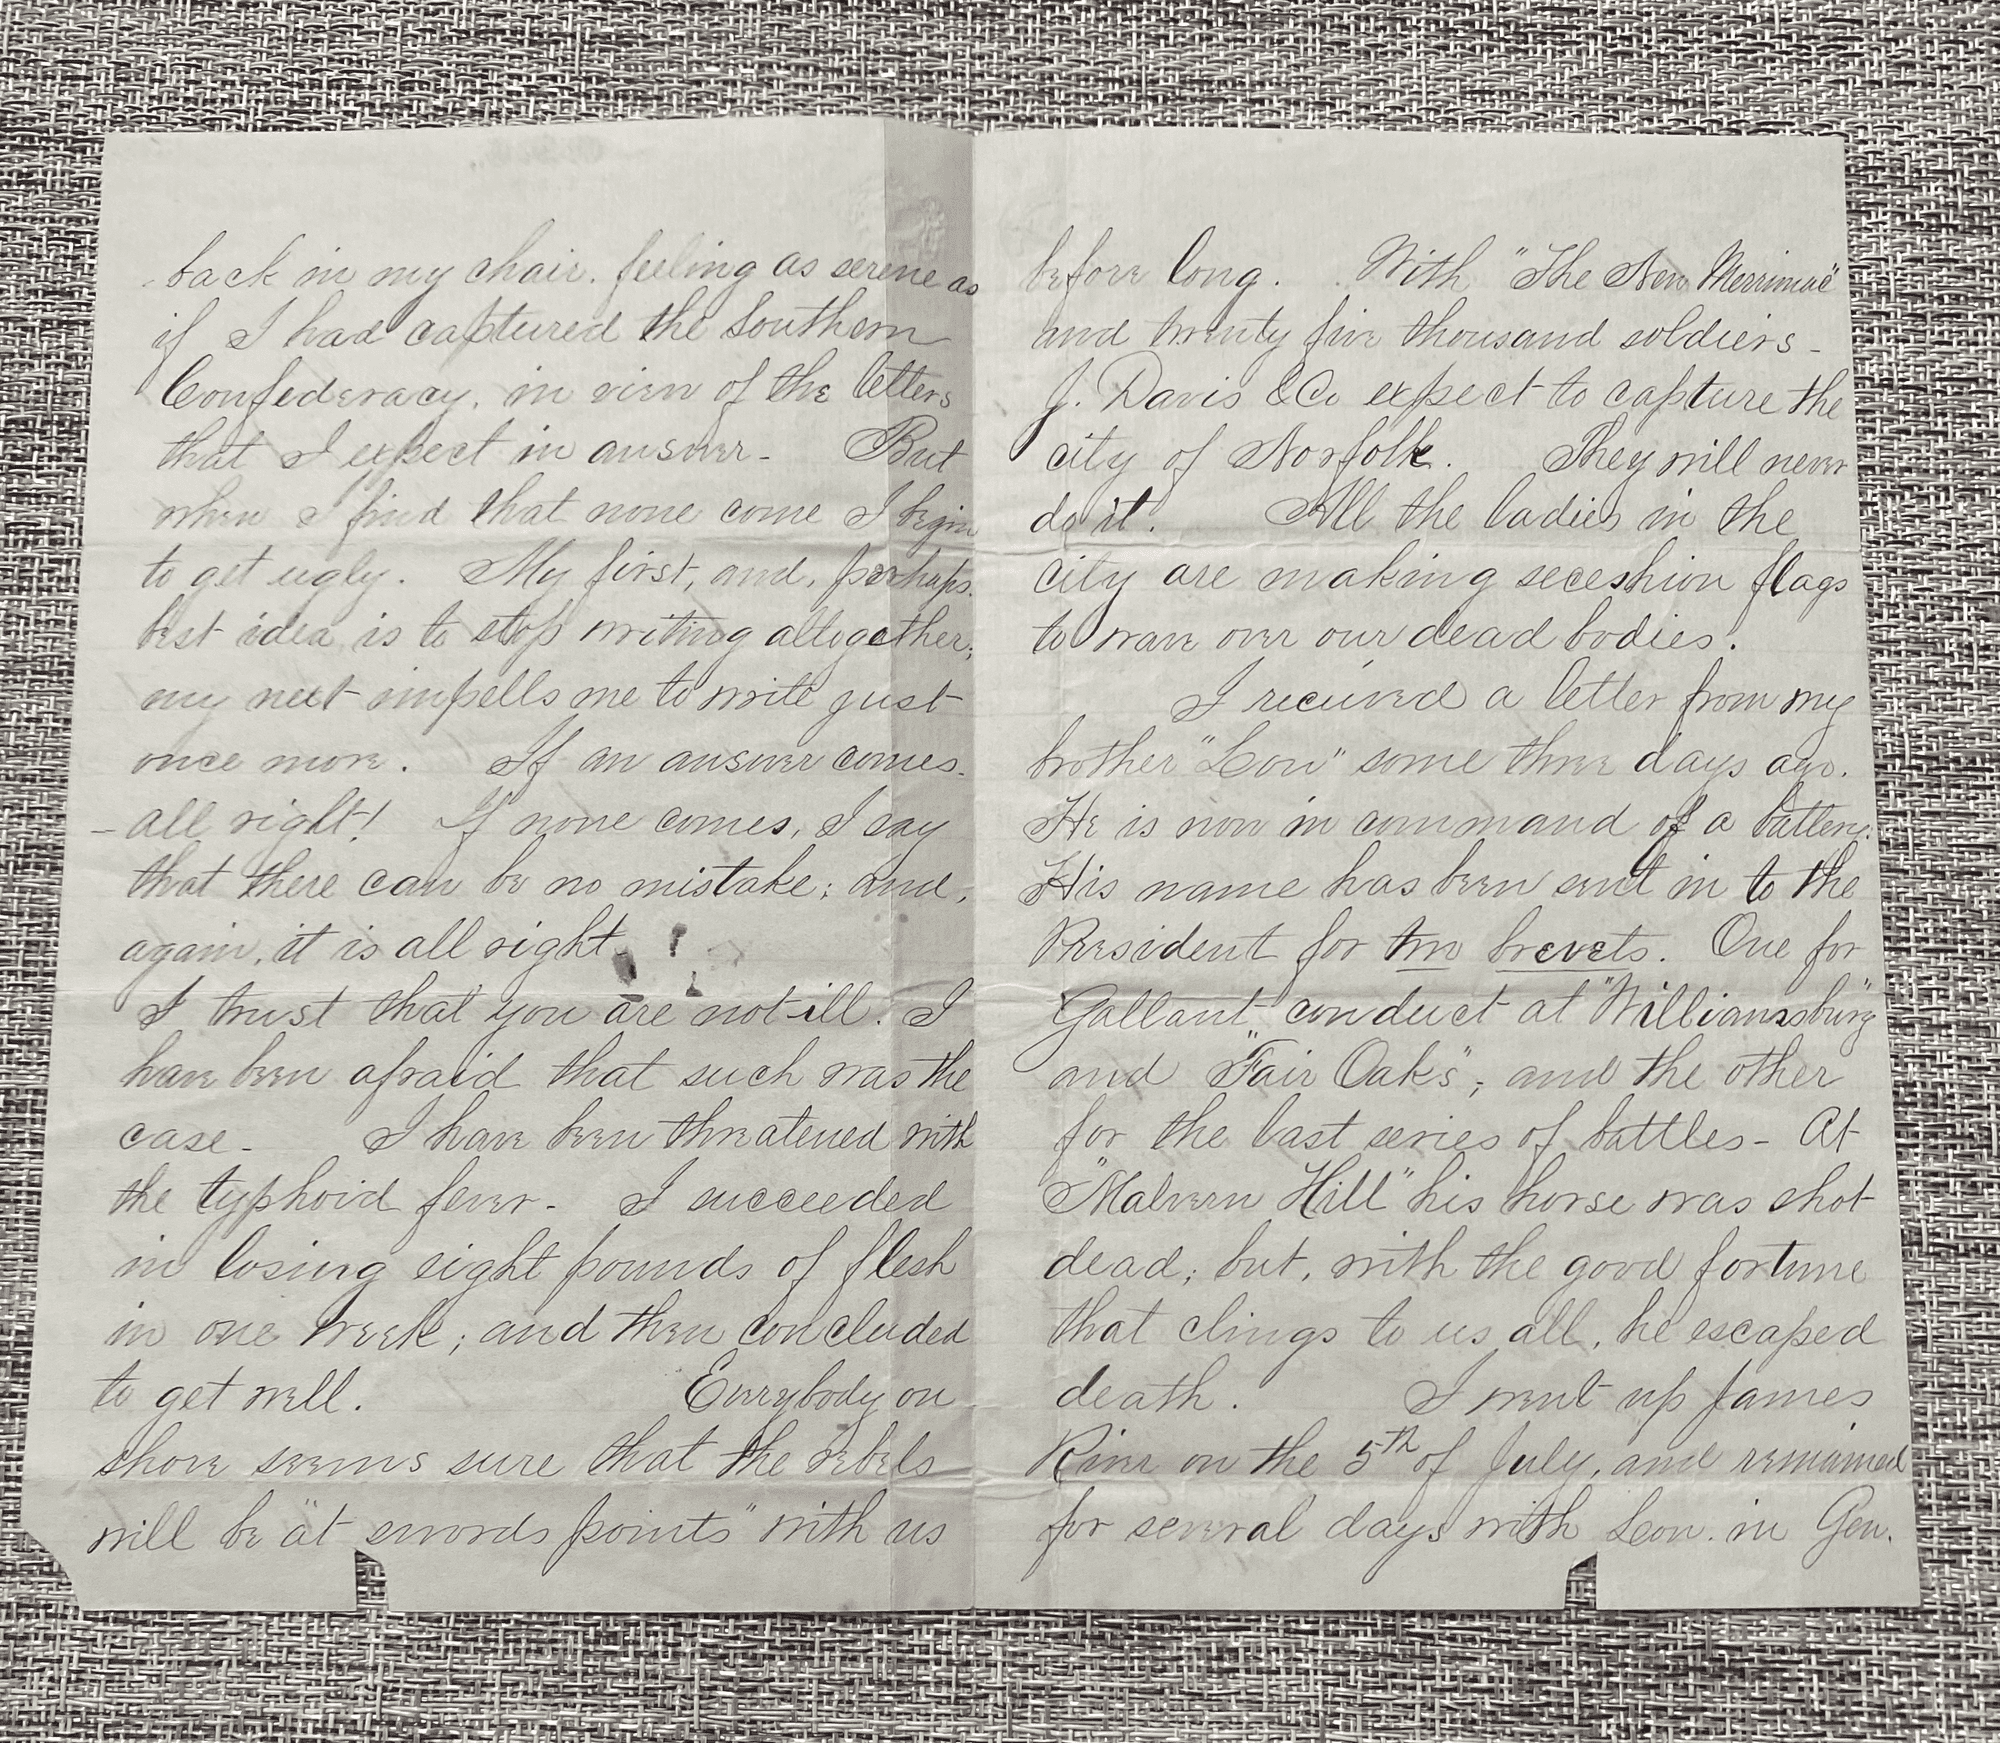 back in my chair. feeling as serene as
if I had captured the Southern
Confederacy, in view of the letters
that I expect in answer - But
when I find that none come I begin
to get ugly. My first, and, perhaps,
best idea, is to stop writing altogether;
my next impells me to write just
once more. If an answer comes -
- all right! If none comes, I say
that there can be no mistake; and,
again, it is all right!
I trust that you are not ill. I
have been afraid that such was the
case - I have been threatened with
the typhoid fever - I succeeded
in losing eight pounds of flesh
in one week; and then concluded
to get well. Everybody on
shore seems sure that the rebels
will be "at swords points" with us
before long. With "The New Merrimac"
and twenty five thousand soldiers -
J. Davis & Co expect to capture the
city of Norfolk. They will never
do it. All the ladies in the
city are making seceshion flags
to wave over our dead bodies.
I received a letter from my
brother "Lou" some three days ago.
He is now in command of a battery.
His name has been sent in to the
President for two brevets. One for
Gallant conduct at "Williamsburg"
and "Fair Oaks"; and the other
for the last series of battles - At
"Malvern Hill" his horse was shot
dead; but, with the good fortune
that clings to us all, he escaped
death. I went up James
River on the 5th of July, and remained
for several days with Lou. in Gen.